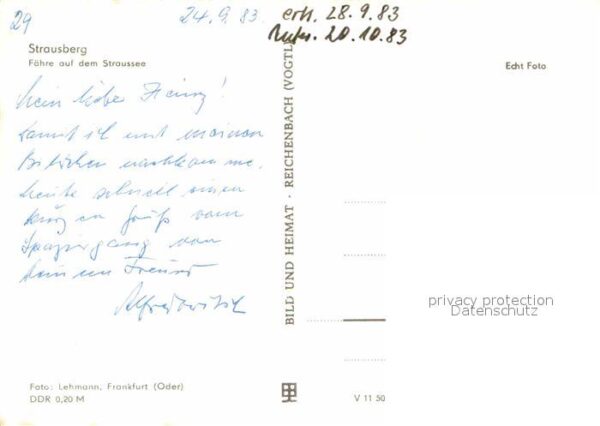 29
24.9.83. erh. 28.9.83
20.10.83
Strausberg
Fähre auf dem Straussee
Echt Foto
Mein lieber Heinz!
Damit ich mit meinen
Berichten nachkomme,
heute schnell einen
kurzen Gruß vom
Spaziergang von
Deinem Freund
BILD UND HEIMAT · REICHENBACH (VOGTL
privacy protection
Datenschutz
Foto: Lehmann, Frankfurt (Oder)
DDR 0,20 M
V 11 50